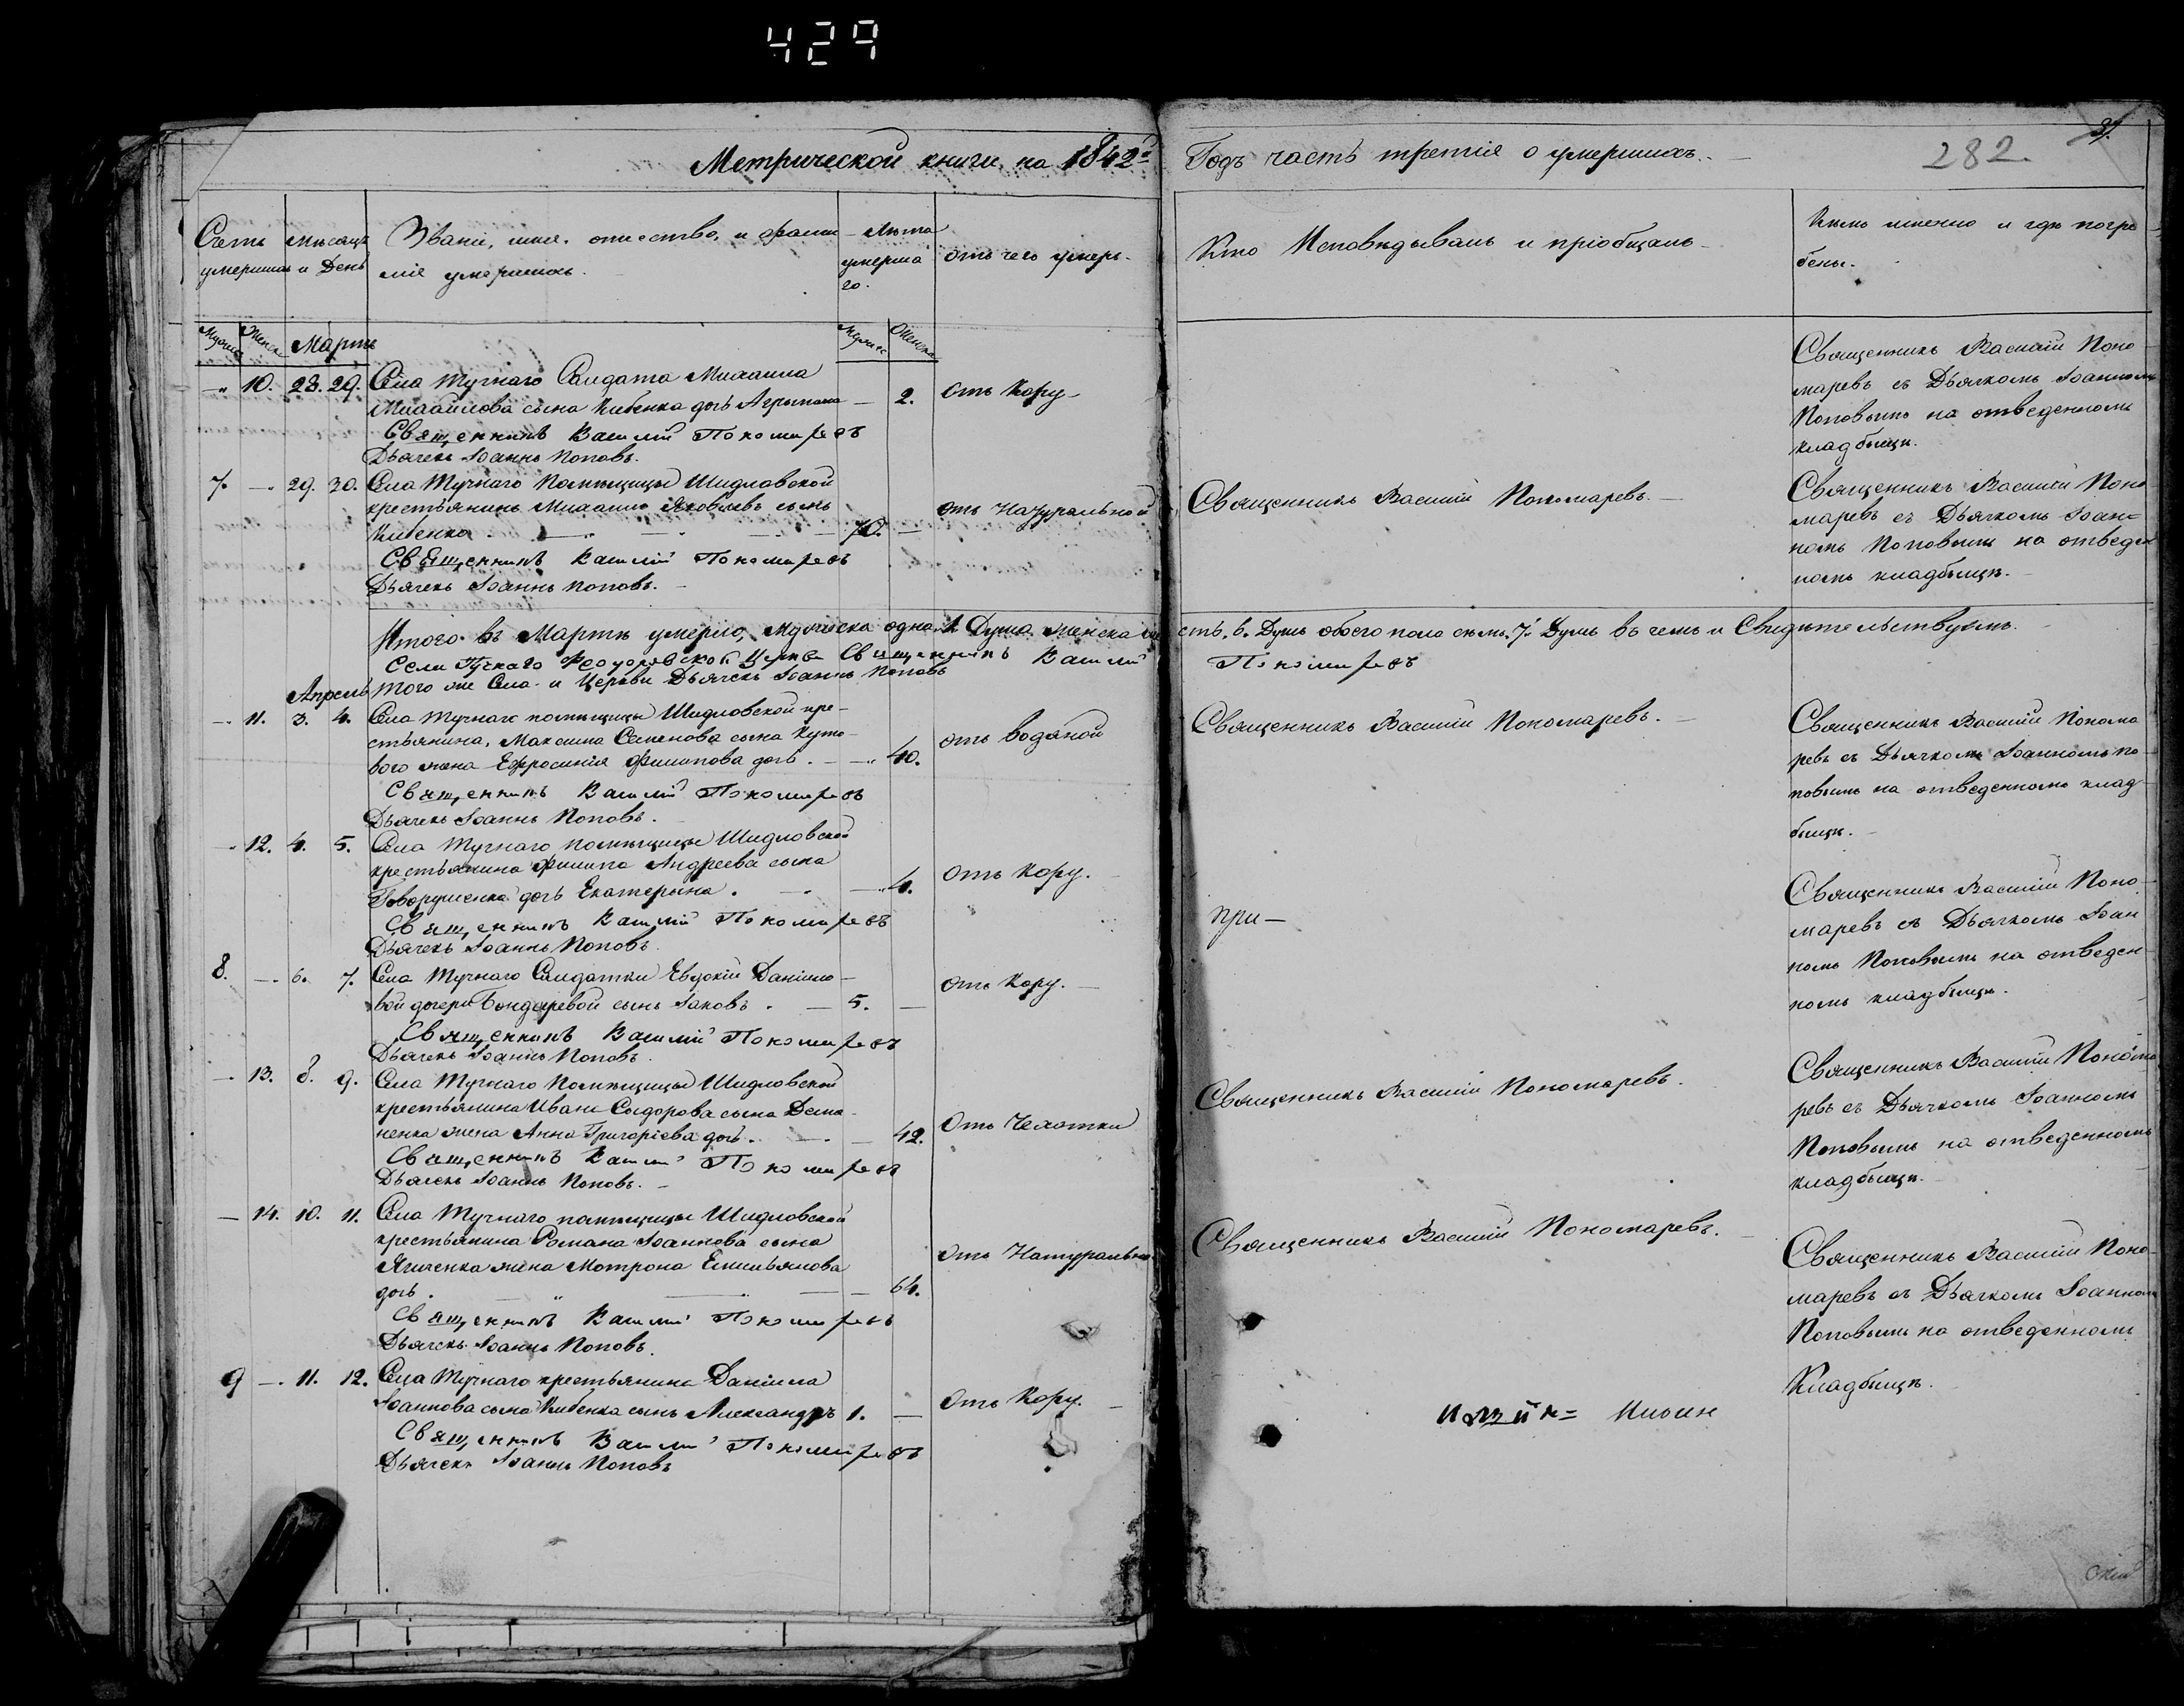 429
Метрической книги на 1842й Годъ часть третія о умершихъ.
282.
Счетъ умершихъ
Мѣсяцъ и День
Званіе, имя, отчество, и фамилія умершихъ.
Лѣта умершаго.
отъ чего умеръ.
Кто Исповѣдывалъ и пріобщалъ
Кѣмъ именно и гдѣ погребены.
Мужска Женска Мартъ Мужска Женска
— 10. 28. 29. Села Тучнаго Салдата Михаила
Михайлова сына Кибенка дочь — 2. отъ Кору
Священникъ Василій Пономаревъ
Дьячекъ Іоаннъ Поповъ.
Священникъ Василій Поно
маревъ съ Дьячкомъ Іоанномъ
Поповымъ на отведенномъ
кладбищѣ.
7. — 29. 30. Села Тучнаго Помѣщицы Шидловской
крестьянинъ Михаилъ Яковлевъ сынъ
Кибенка 70. — отъ Натуральной
Священникъ Василій Пономаревъ
Дьячекъ Іоаннъ Поповъ.
Священникъ Василій Пономаревъ.
Священникъ Василій Поно
маревъ съ Дьячкомъ Іоан=
номъ Поповымъ на отведен
номъ кладбищѣ.
Итого въ Мартѣ умерло, мужеска одна 1. Душа женска шесть. 6. Душъ обоего пола семь. 7. Душъ въ чемъ и Свидѣтельствуемъ.
Села Тучнаго Феодоровской Церкви Священникъ Василій Пономаревъ
того же Села и Церкви Дьячекъ Іоаннъ Поповъ
Апрель
— 11. 3. 4. Села Тучнаго помѣщицы Шидловской кре-
стьянина, Максима Семенова сына
вого жена Ефросинія Филипова дочь. — 40. отъ водяной
Священникъ Василій Пономаревъ
Дьячекъ Іоаннъ Поповъ.
Священникъ Василій Пономаревъ.
Священникъ Василій Понома
ревъ съ Дьячкомъ Іоанномъ По
повымъ на отведенномъ клад
бищѣ.
— 12. 4. 5. Села Тучнаго помѣщицы Шидловской
крестьянина Филипа Андреева сына
Говорушенка дочь Екатерына. — 4. отъ Кору.
Священникъ Василій Пономаревъ
Дьячекъ Іоаннъ Поповъ.
при —
Священникъ Василій Поно
маревъ съ Дьячкомъ Іоан
номъ Поповымъ на отведен
номъ кладбищѣ.
8. — 6. 7. Села Тучнаго Салдатки Евдокіи Данило
вой дочери Бондаревой сынъ Іаковъ. — 5. — отъ Кору.
Священникъ Василій Пономаревъ
Дьячекъ Іоаннъ Поповъ.
— 13. 8. 9. Села Тучнаго Помѣщицы Шидловской
крестьянина Ивана Сыдорова сына Дема
ненка жена Анна Григоріева дочь. — 42. Отъ Чехотки
Священникъ Василій Пономаревъ
Дьячекъ Іоаннъ Поповъ.
Священникъ Василій Пономаревъ.
Священникъ Василій Понома
ревъ съ Дьячкомъ Іоанномъ
Поповымъ на отведенномъ
кладбищѣ.
— 14. 10. 11. Села Тучнаго помѣщицы Шидловской
крестьянина Романа Іоаннова сына
жена Мотрона Емильянова
дочь. — 64. отъ Натуральной
Священникъ Василій Пономаревъ
Дьячекъ Іоаннъ Поповъ.
Священникъ Василій Пономаревъ.
Священникъ Василій Поно-
маревъ съ Дьячкомъ Іоанномъ
Поповымъ на отведенномъ
Кладбищѣ.
9 — 11. 12. Села Тучнаго крестьянина Даніила
Іоаннова сына Кибенка сынъ Александръ 1. — Отъ Кору.
Священникъ Василій Пономаревъ
Дьячекъ Іоаннъ Поповъ